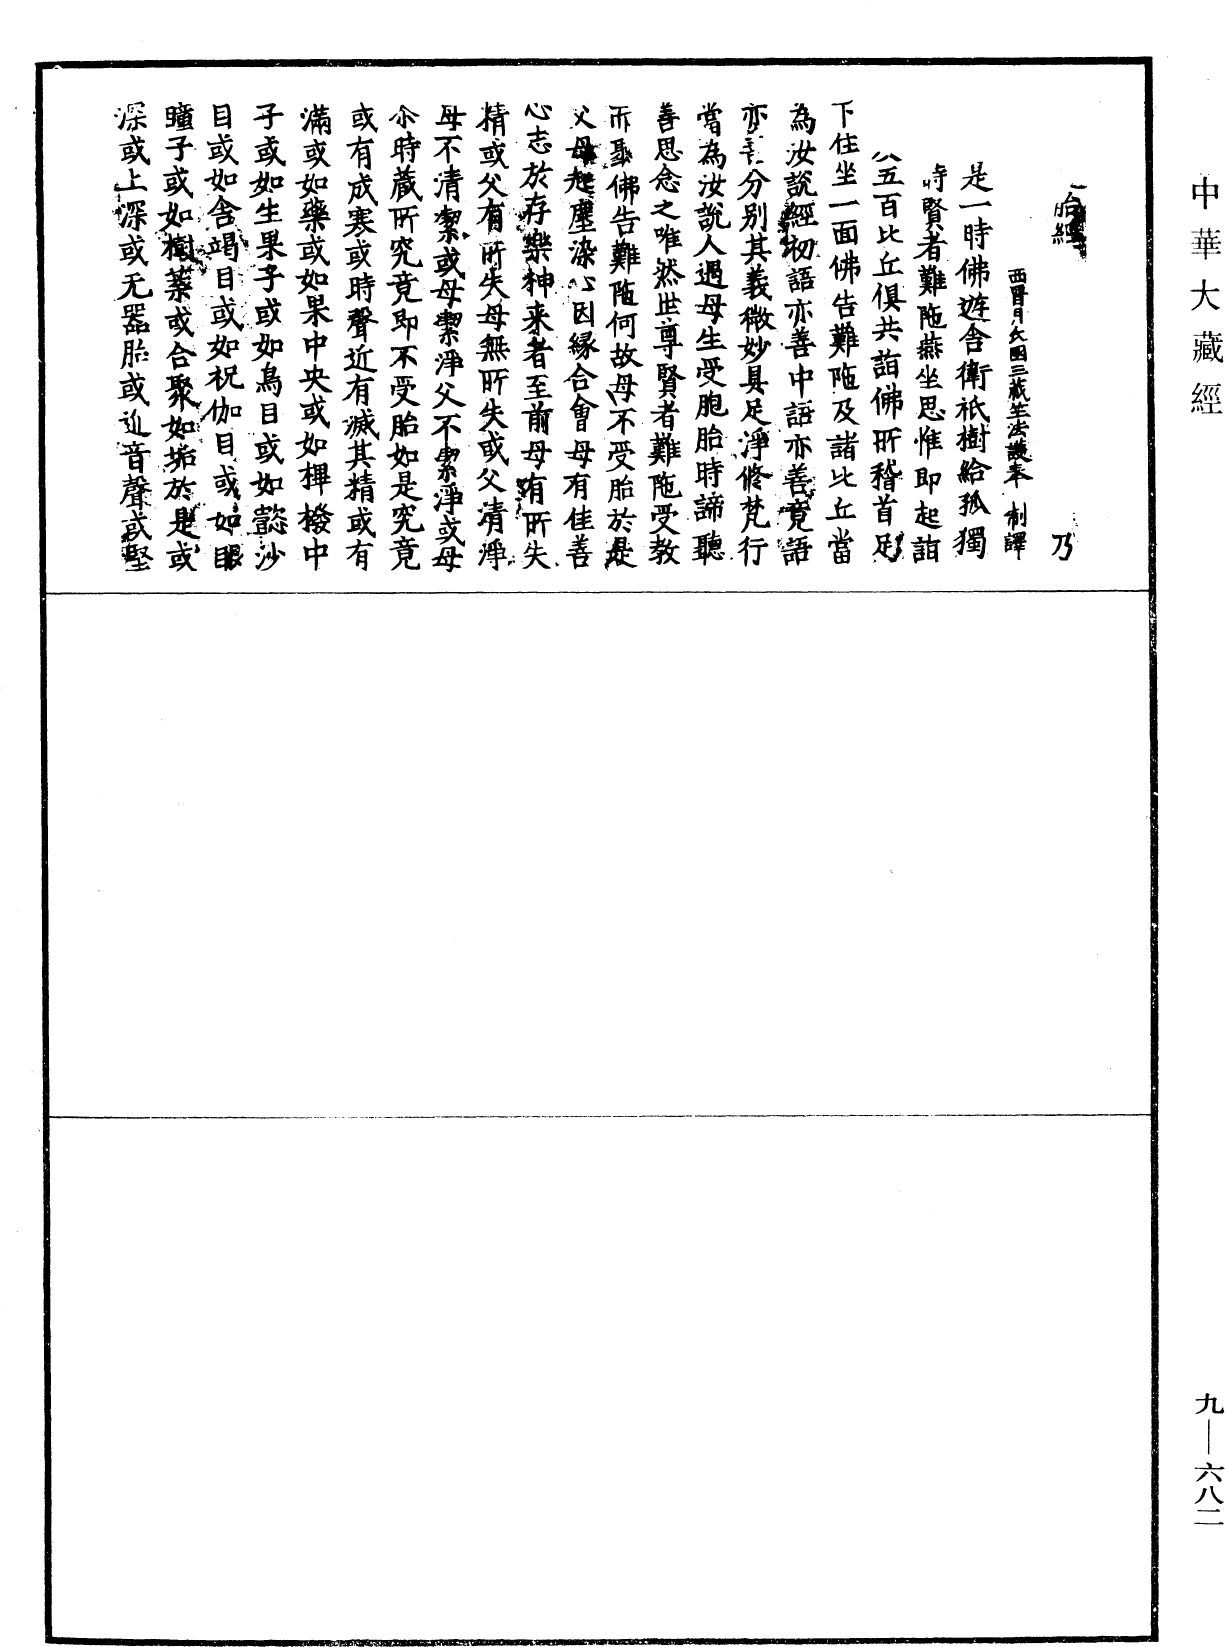 中華大藏經
胎經 乃
西晉月氏國三藏竺法護奉 制譯
是一時佛遊舍衛祇樹給孤獨
時賢者難陁燕坐思惟即起詣
五百比丘俱共詣佛所稽首足
下住坐一面佛告難陁及諸比丘當
為汝說經初語亦善中語亦善竟語
亦善分別其義微妙具足淨修梵行
當為汝說人遇母生受胞胎時諦聽
善思念之唯然世尊賢者難陁受教
而聽佛告難陁何故母不受胎於是
父母起塵染心因緣合會母有佳善
心志於存樂神来者至前母有所失
精或父有所失母無所失或父清淨
母不清潔或母潔淨父不潔淨或母
尒時藏所究竟即不受胎如是究竟
或有成寒或時聲近有滅其精或有
滿或如藥或如果中央或如榫橃中
子或如生果子或如鳥目或如懿沙
目或如含竭目或如祝伽目或如眼
瞳子或如樹葉或合聚如垢於是或
深或上深或无器胎或近音聲或堅
九—六八二